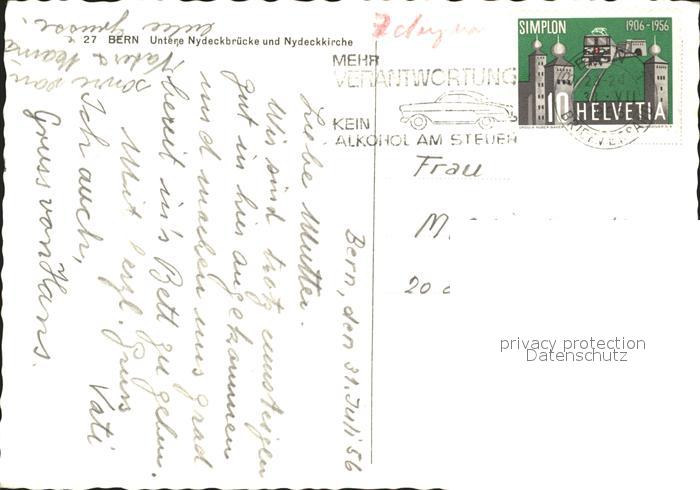 27 BERN Untere Nydeckbrücke und Nydeckkirche
SIMPLON 1906-1956
10 HELVETIA
MEHR
VERANTWORTUNG
KEIN
ALKOHOL AM STEUER
Frau
M.
20
privacy protection
Datenschutz
Bern, den 31. Juli 56
Liebe Mutter.
Wir sind trotz umsteigen
gut in hier angekommen
und machen uns grad
bereit in's Bett zu gehen.
Mit herzl. Gruss
Vati
Ich auch,
Gruss von Hans.
sowie von